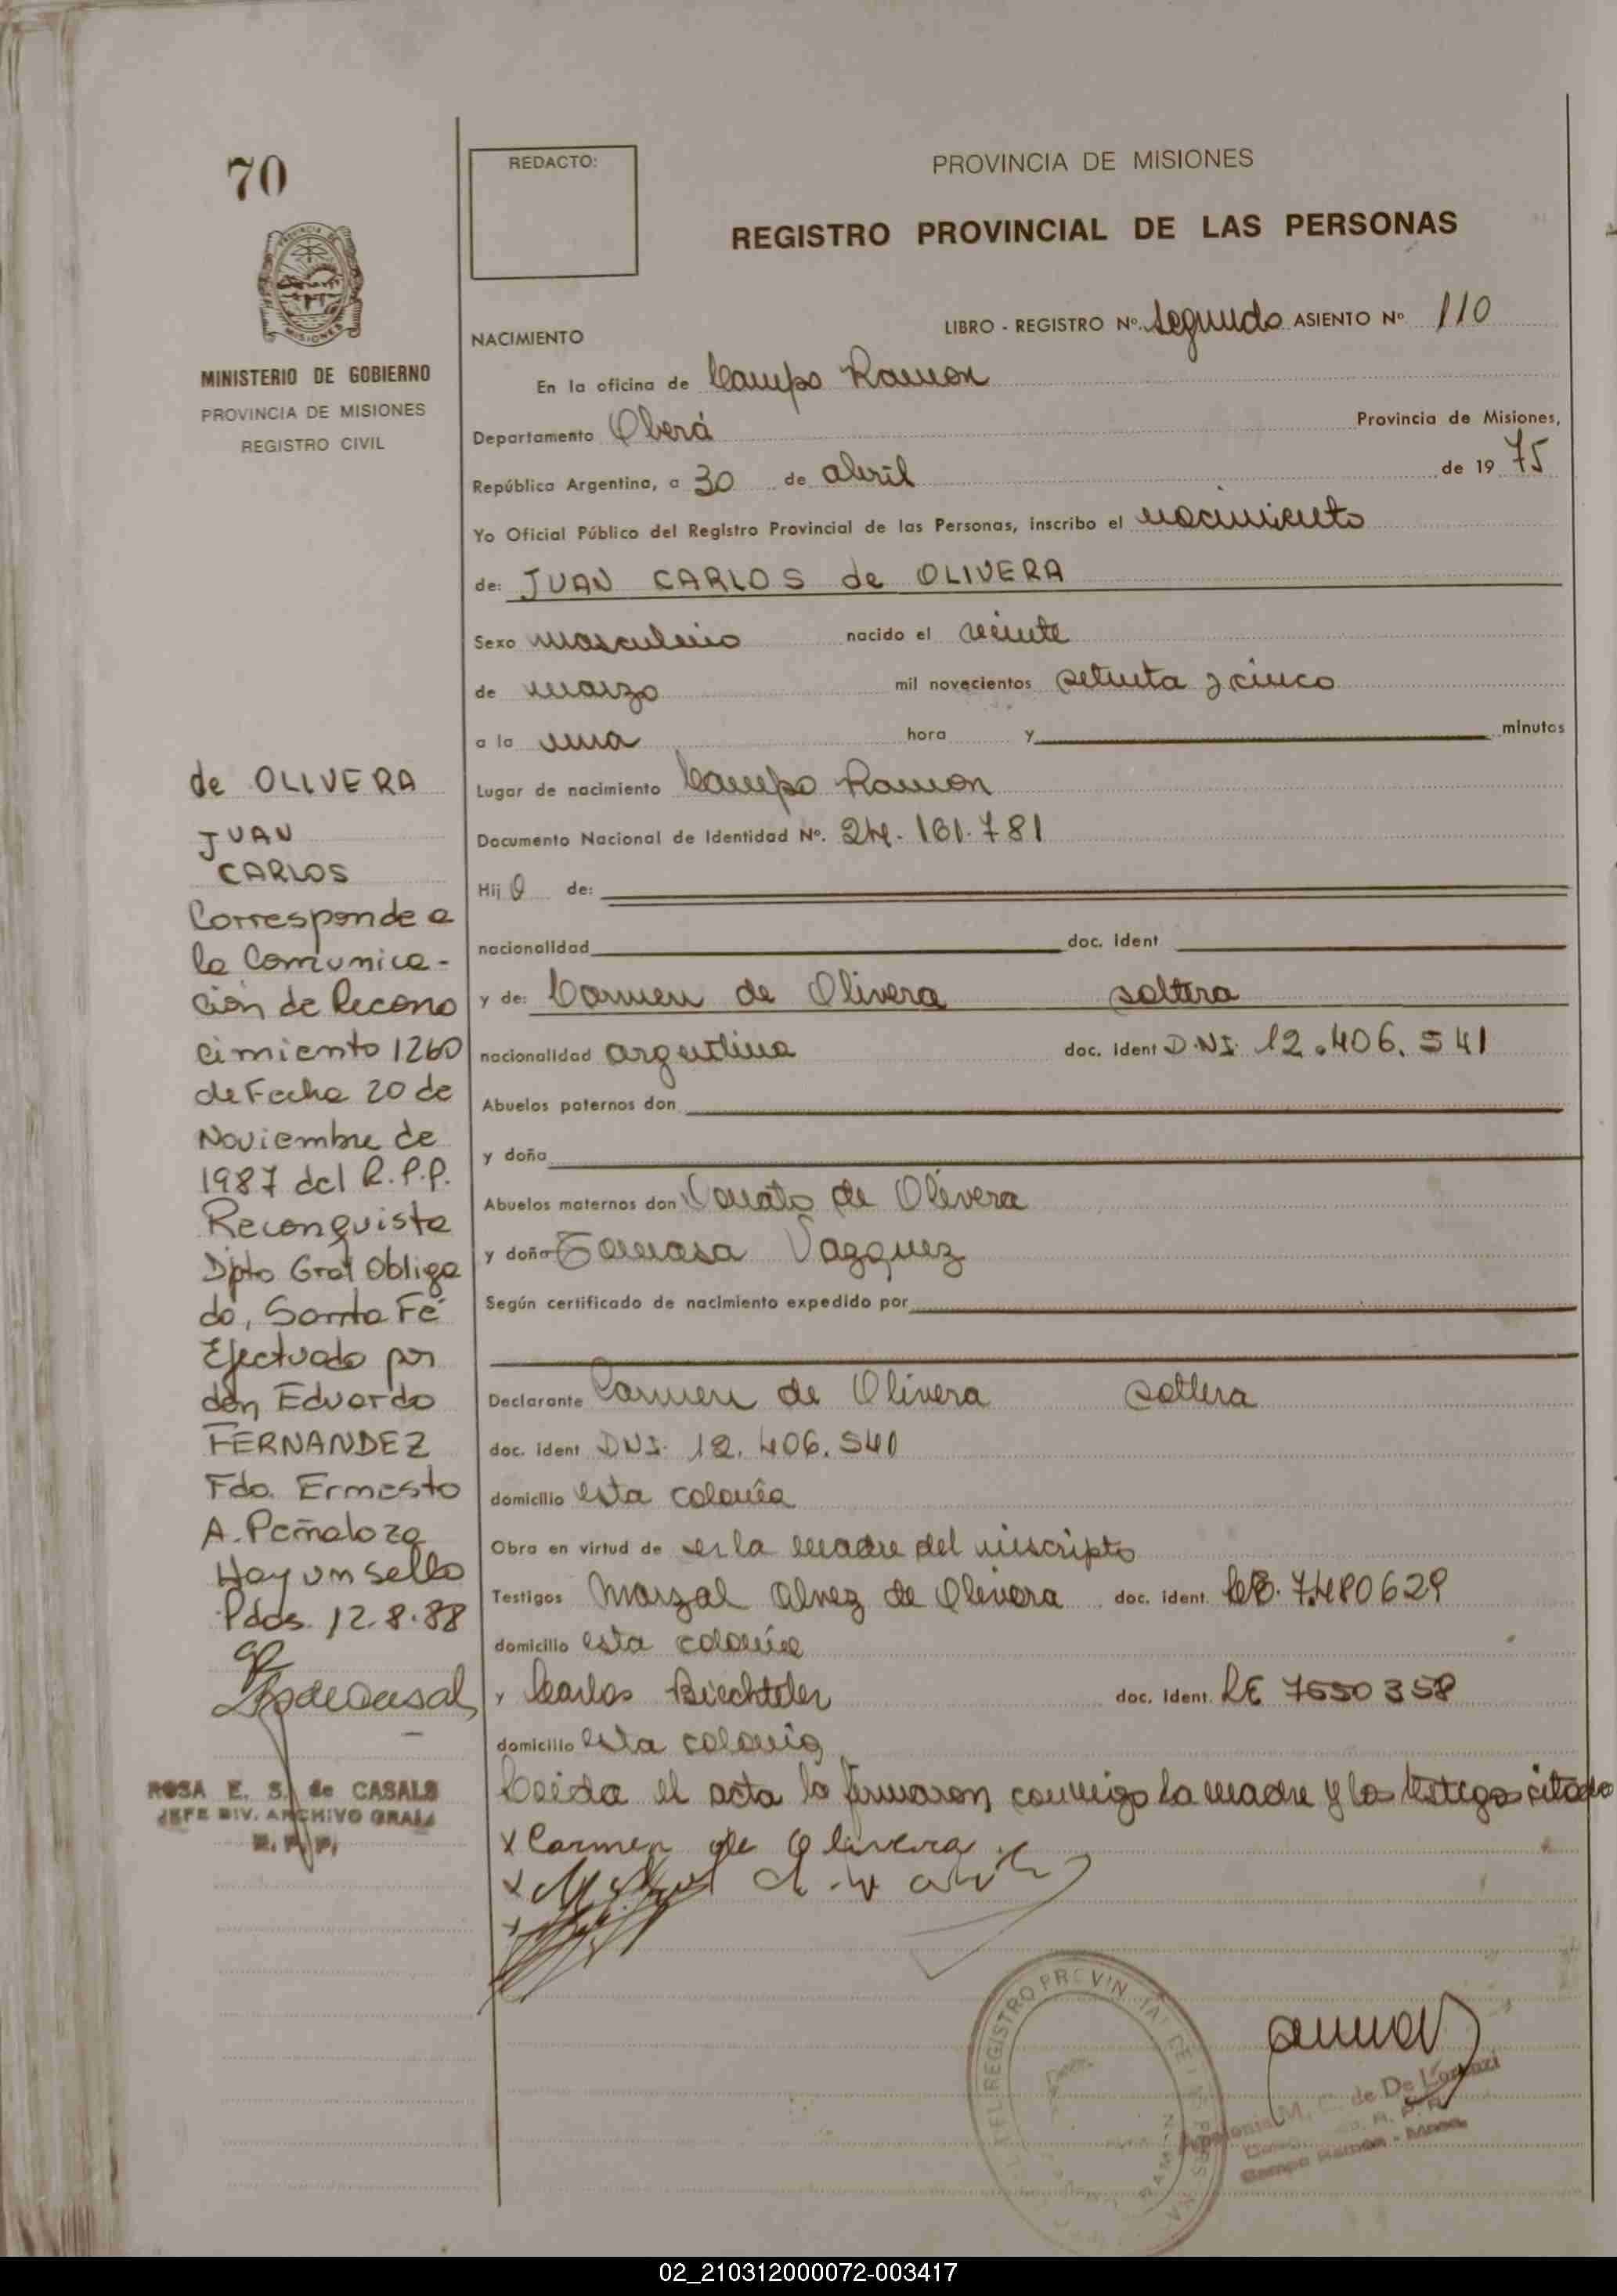 70
REDACTO:
PROVINCIA DE MISIONES
REGISTRO PROVINCIAL DE LAS PERSONAS
MINISTERIO DE GOBIERNO
PROVINCIA DE MISIONES
REGISTRO CIVIL
NACIMIENTO
LIBRO - REGISTRO Nº. Segundo ASIENTO Nº 110
En la oficina de Campo Ramon
Departamento Oberá Provincia de Misiones,
República Argentina, a 30 de abril de 19 75
Yo Oficial Público del Registro Provincial de las Personas, inscribo el nacimiento
de: JUAN CARLOS de OLIVERA
Sexo masculino nacido el veinte
de marzo mil novecientos setenta y cinco
a la una hora y minutos
Lugar de nacimiento Campo Ramon
Documento Nacional de Identidad Nº. 24.161.781
Hij o de:
nacionalidad doc. ident
y de: Carmen de Olivera soltera
nacionalidad argentina doc. ident D.N.I. 12.406.541
Abuelos paternos don
y doña
Abuelos maternos don Donato de Olivera
y doña Tomasa Vazquez
Según certificado de nacimiento expedido por
Declarante Carmen de Olivera soltera
doc. ident DNI. 12.406.540
domicilio esta colonia
Obra en virtud de ser la madre del inscripto
Testigos Marzal Alvez de Olivera doc. ident. 7.480629
domicilio esta colonia
y Carlos Biechteler doc. ident. LE 7550358
domicilio esta colonia
Leida el acta la firmaron conmigo la madre y los testigos citados
x Carmen de Olivera
de OLIVERA
JUAN
CARLOS
Corresponde a
la Comunica-
ción de Recono
cimiento 1260
de Fecha 20 de
Noviembre de
1987 del R.P.P.
Reconquista
Dpto Gral Obliga
do, Santa Fé
Efectuado por
don Eduardo
FERNANDEZ
Fdo. Ernesto
A. Peñaloza
Hay un sello
Pdas. 12.8.88
ROSA E. S. de CASALS
JEFE DIV. ARCHIVO GRAL
R. P. P.
REGISTRO PROVINCIAL DE LAS PERSONAS
M. C. de De Lorenzi
Campo Ramon - Mnes.
02_210312000072-003417